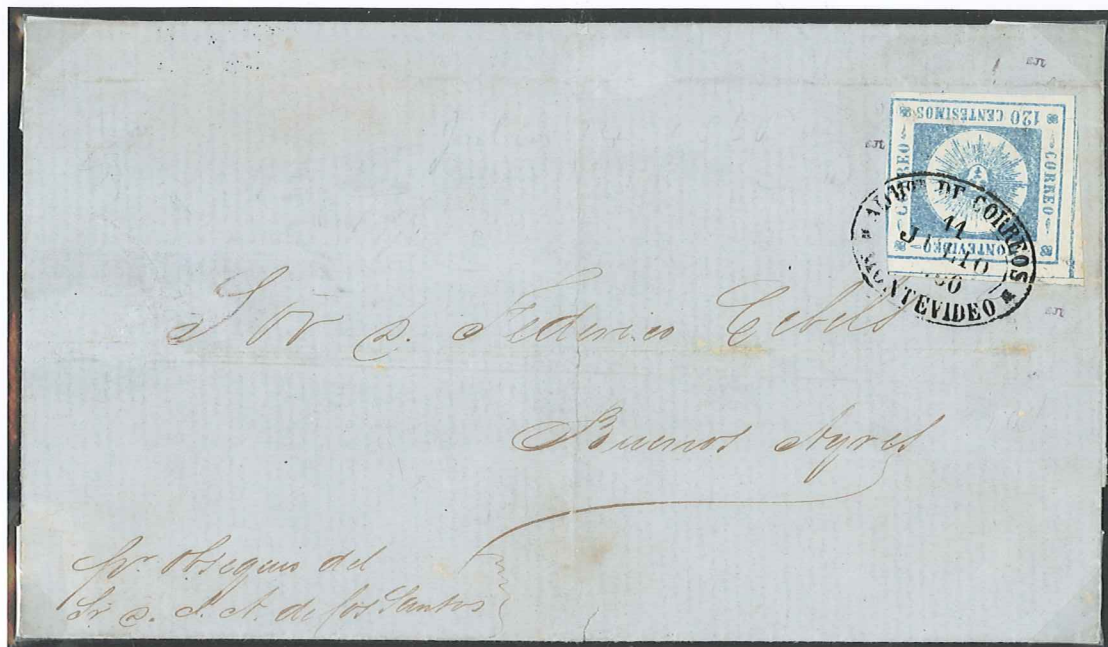 120 CENTESIMOS
CORREO
CORREO
MONTEVIDEO
ADMON DE CORREOS
11
JULIO
60
MONTEVIDEO
Sōr D. Federico
Buenos Ayres
pr Obsequio del
Sr D. J. A. de los Santos